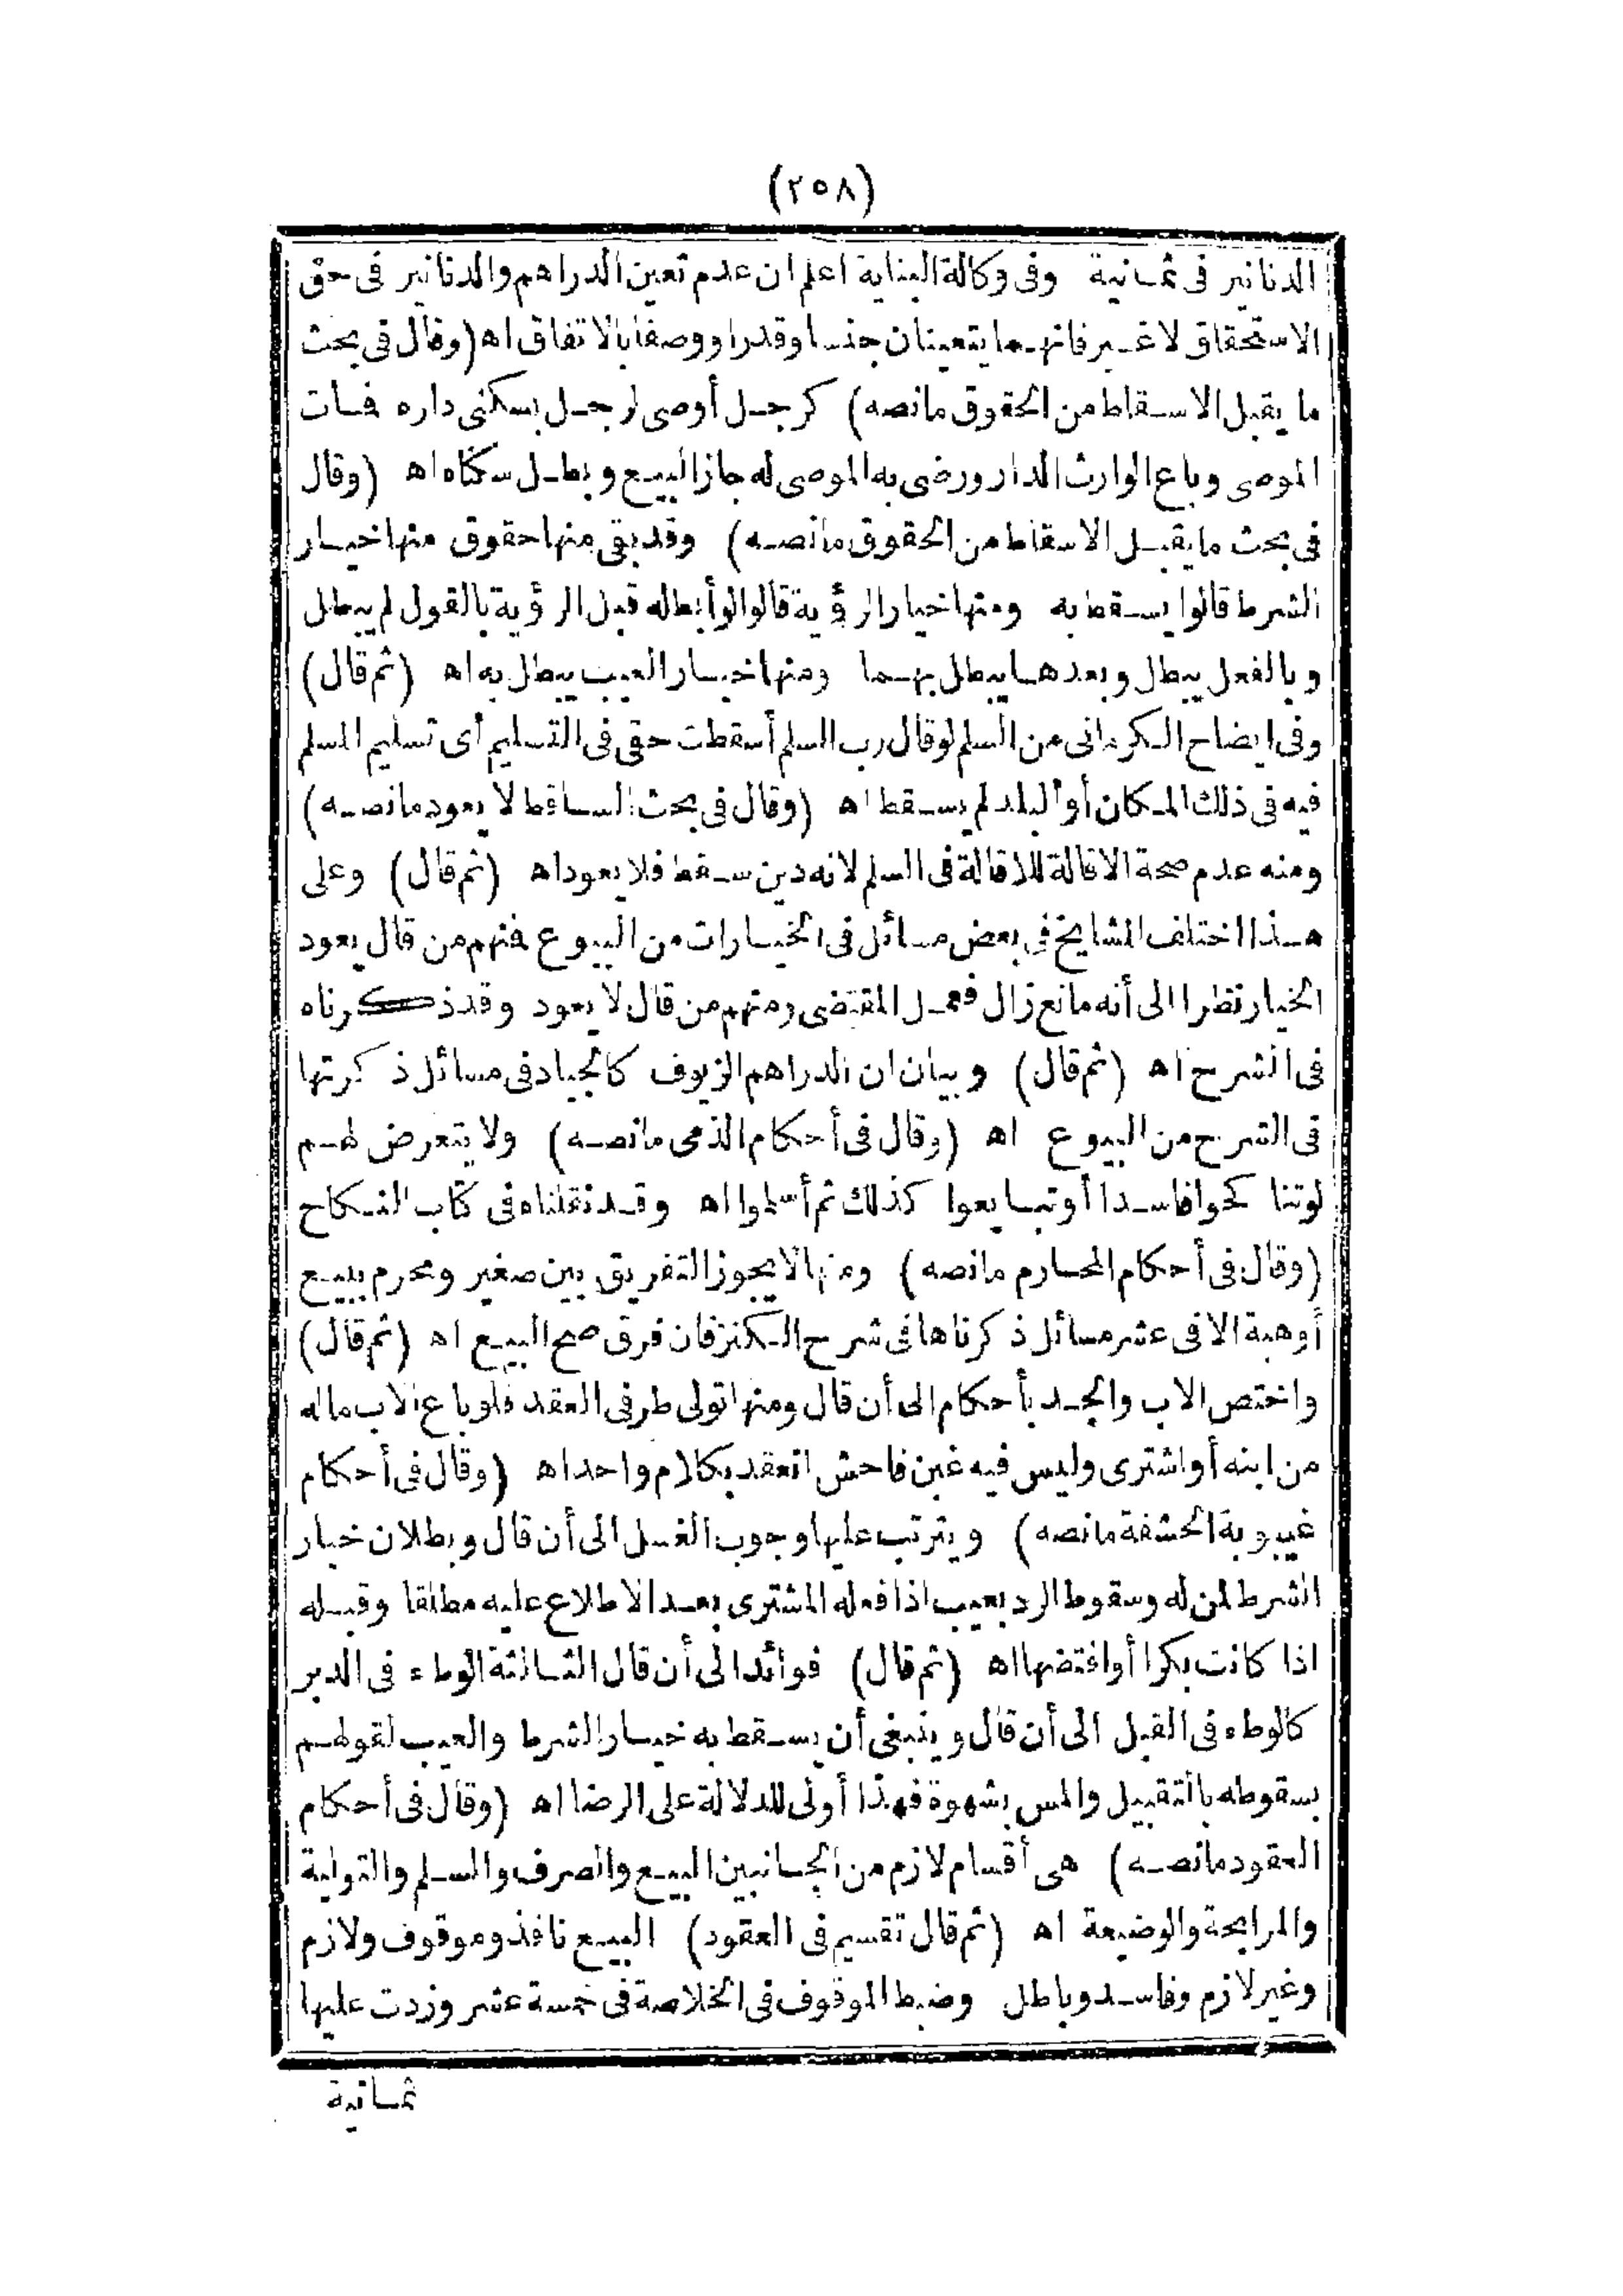 (٢٥٨)
الدنانير فى ثمانية وفى وكالة البناية اعلم ان عدم تعين الدراهم والدنانير فى حق
الاستحقاق لا غير فانهما يتعينان جنسا وقدرا ووصفا بالاتفاق اه (وقال فى بحث
ما يقبل الاسقاط من الحقوق مانصه) كرجل أوصى لرجل بسكنى داره فمات
الموصى وباع الوارث الدار ورضى به الموصى له جاز البيع وبطل سكناه اه (وقال
فى بحث ما يقبل الاسقاط من الحقوق مانصه) وقد بقى منها حقوق منها خيار
الشرط قالوا يسقط به ومنها خيار الرؤية قالوا لو أبطله قبل الرؤية بالقول لم يبطل
وبالفعل يبطل وبعدها يبطل بهما ومنها خيار العيب يبطل به اه (ثم قال)
وفى ايضاح الكرمانى من السلم لوقال رب السلم أسقطت حقى فى التسليم أى تسليم المسلم
فيه فى ذلك المكان أو البلد لم يسقط اه (وقال فى بحث الساقط لا يعود مانصه)
ومنه عدم صحة الاقالة للاقالة فى السلم لانه دين سقط فلا يعود اه (ثم قال) وعلى
هذا اختلف المشايخ فى بعض مسائل فى الخيارات من البيوع فمنهم من قال يعود
الخيار نظرا الى أنه مانع زال فعمل المقتضى ومنهم من قال لا يعود وقد ذكرناه
فى الشرح اه (ثم قال) وبيان ان الدراهم الزيوف كالجياد فى مسائل ذكرتها
فى الشرح من البيوع اه (وقال فى أحكام الذمى مانصه) ولا يتعرض لهم
لوتنا كحوا فاسدا أو تبايعوا كذلك ثم أسلموا اه وقد نقلناه فى كتاب النكاح
(وقال فى أحكام المحارم مانصه) ومنها لا يجوز التفريق بين صغير ومحرم ببيع
أو هبة الا فى عشر مسائل ذكرناها فى شرح الكنز فان فرق صح البيع اه (ثم قال)
واختص الاب والجد بأحكام الى أن قال ومنها تولى طرفى العقد فلو باع الاب ماله
من ابنه أو اشترى وليس فيه غبن فاحش انعقد بكلام واحد اه (وقال فى أحكام
غيبوبة الحشفة مانصه) ويترتب عليها وجوب الغسل الى أن قال وبطلان خيار
الشرط لمن له وسقوط الرد بعيب اذا فعله المشترى بعد الاطلاع عليه مطلقا وقبله
اذا كانت بكرا أو افتضها اه (ثم قال) فوائد الى أن قال الثالثة الوطء فى الدبر
كالوطء فى القبل الى أن قال وينبغى أن يسقط به خيار الشرط والعيب لقولهم
بسقوطه بالتقبيل والمس بشهوة فهذا أولى للدلالة على الرضا اه (وقال فى أحكام
العقود مانصه) هى أقسام لازم من الجانبين البيع والصرف والسلم والتولية
والمرابحة والوضيعة اه (ثم قال تقسيم فى العقود) البيع نافذ وموقوف ولازم
وغير لازم وفاسد وباطل وضبط الموقوف فى الخلاصة فى خمسة عشر وزدت عليها
ثمانية